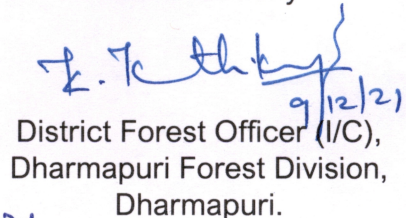 9/12/21
District Forest Officer (I/C),
Dharmapuri Forest Division,
Dharmapuri.